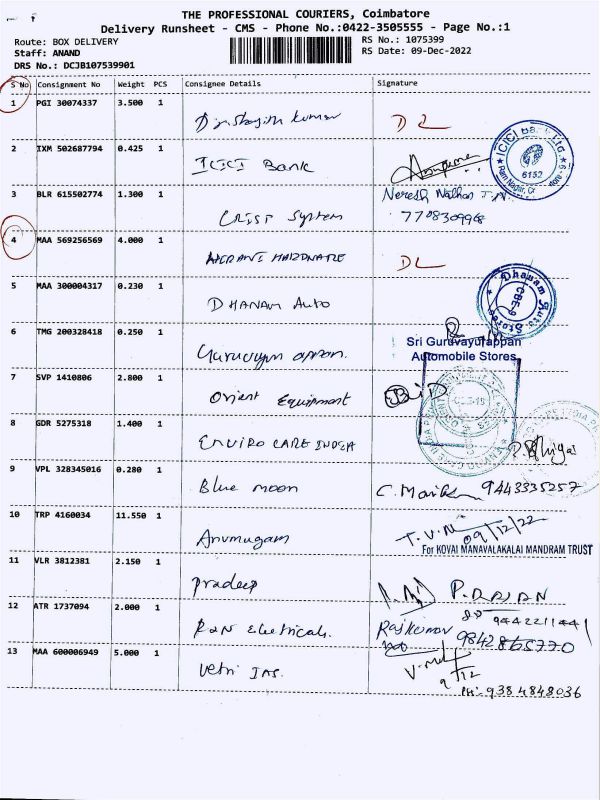 THE PROFESSIONAL COURIERS, Coimbatore
Delivery Runsheet - CMS - Phone No.:0422-3505555 - Page No.:1
Route: BOX DELIVERY
RS No.: 1075399
Staff: ANAND
RS Date: 09-Dec-2022
DRS No.: DCJB107539901
S No Consignment No Weight PCS Consignee Details Signature
1 PGI 30074337 3.500 1 kumar DL
2 IXM 502687794 0.425 1 ICICI Bank
ICICI Bank Ltd
6152
Ram Nagar,
3 BLR 615502774 1.300 1 CRIST System Naresh Nathan
7708309968
4 MAA 569256569 4.000 1 HARDWARE DL
5 MAA 300004317 0.230 1 DHANAM Auto
Dhanam Auto Stores
CBE-9
6 TMG 200328418 0.250 1
Sri Guruvayurappan
Automobile Stores
7 SVP 1410806 2.800 1 Orient Equipment
8 GDR 5275318 1.400 1 ENVIRO CARE INDIA
9 VPL 328345016 0.280 1 Blue moon C. 9443335257
10 TRP 4160034 11.550 1 Arumugam T.V. 09/12/22
For KOVAI MANAVALAKALAI MANDRAM TRUST
11 VLR 3812381 2.150 1 pradeep P. RAJAN
9442211441
12 ATR 1737094 2.000 1 R&N Electricals. Rajkumar
9842865770
13 MAA 600006949 5.000 1 Vetri IAS.
9/12
PH: 9384848036